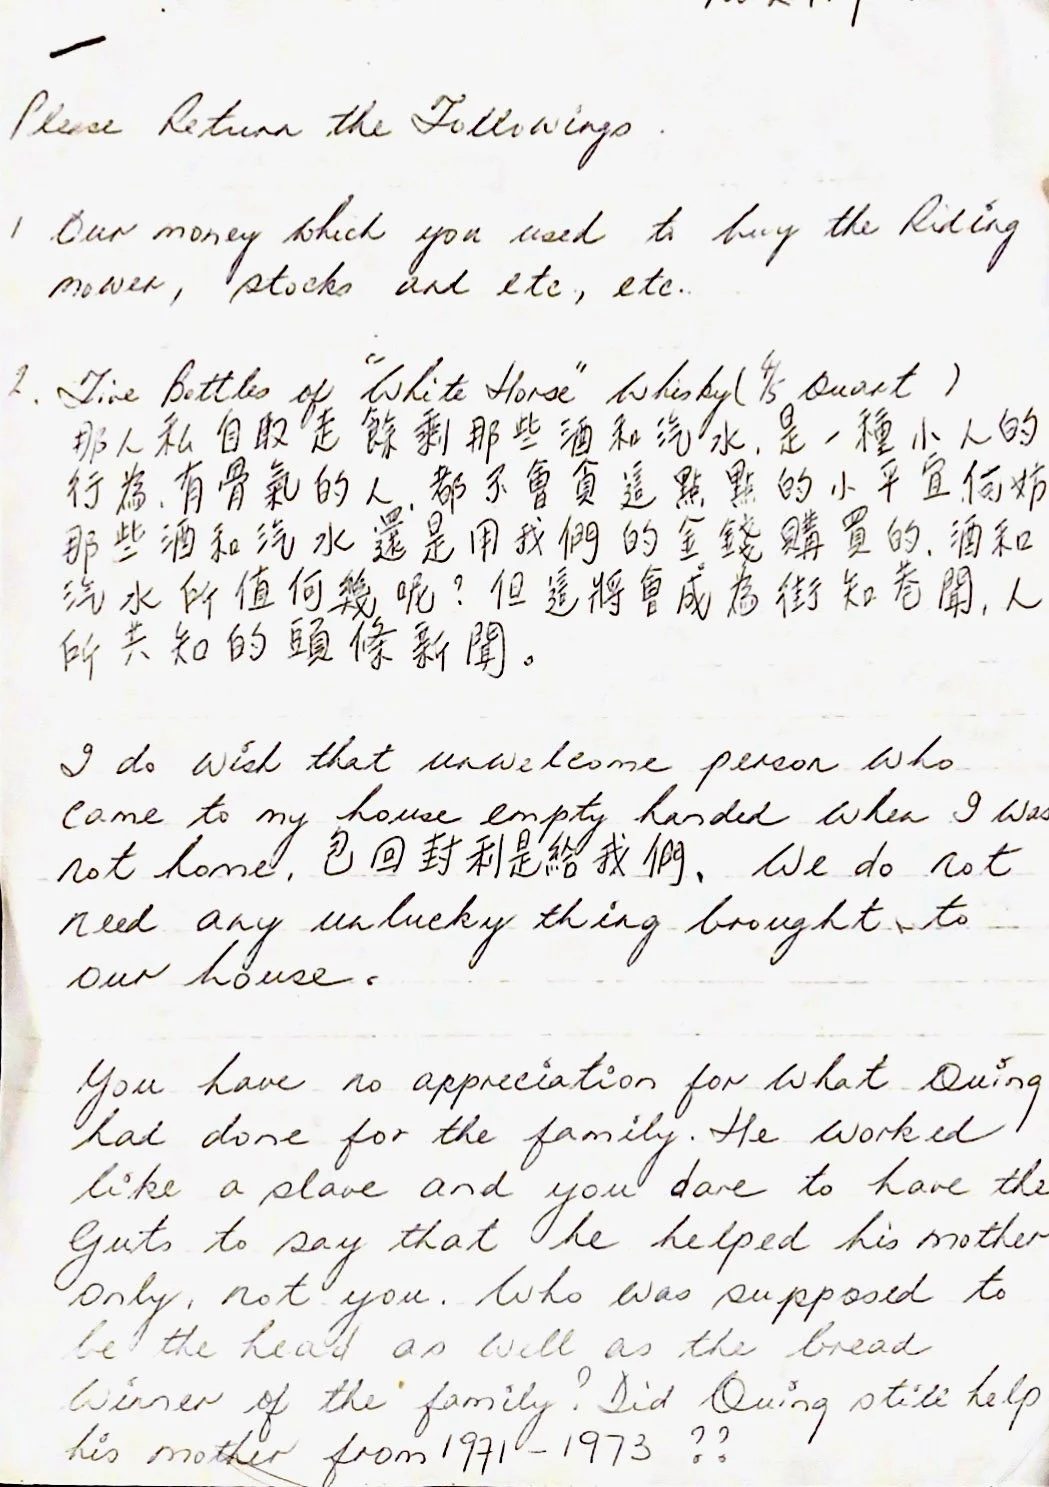 Please Return the Followings.
1 Our money which you used to buy the Riding
mower, stocks and etc, etc..
2. Five Bottles of "White Horse" Whisky (4/5 Quart)
那人私自取走餘剩那些酒和汽水,是一種小人的
行為,有骨氣的人,都不會貪這點點的小平宜,何
那些酒和汽水還是用我們的金錢購買的,酒和
汽水所值何幾呢?但這將會成為街知巷聞,人
所共知的頭條新聞。
I do wish that unwelcome person who
came to my house empty handed when I was
not home, 包回封利是給我們、 We do not
need any unlucky thing brought to
our house.
You have no appreciation for what Quing
had done for the family. He worked
like a slave and you dare to have the
Guts to say that he helped his mother
only, not you. Who was supposed to
be the head as well as the bread
winner of the family? Did Quing still help
his mother from 1971-1973 ??